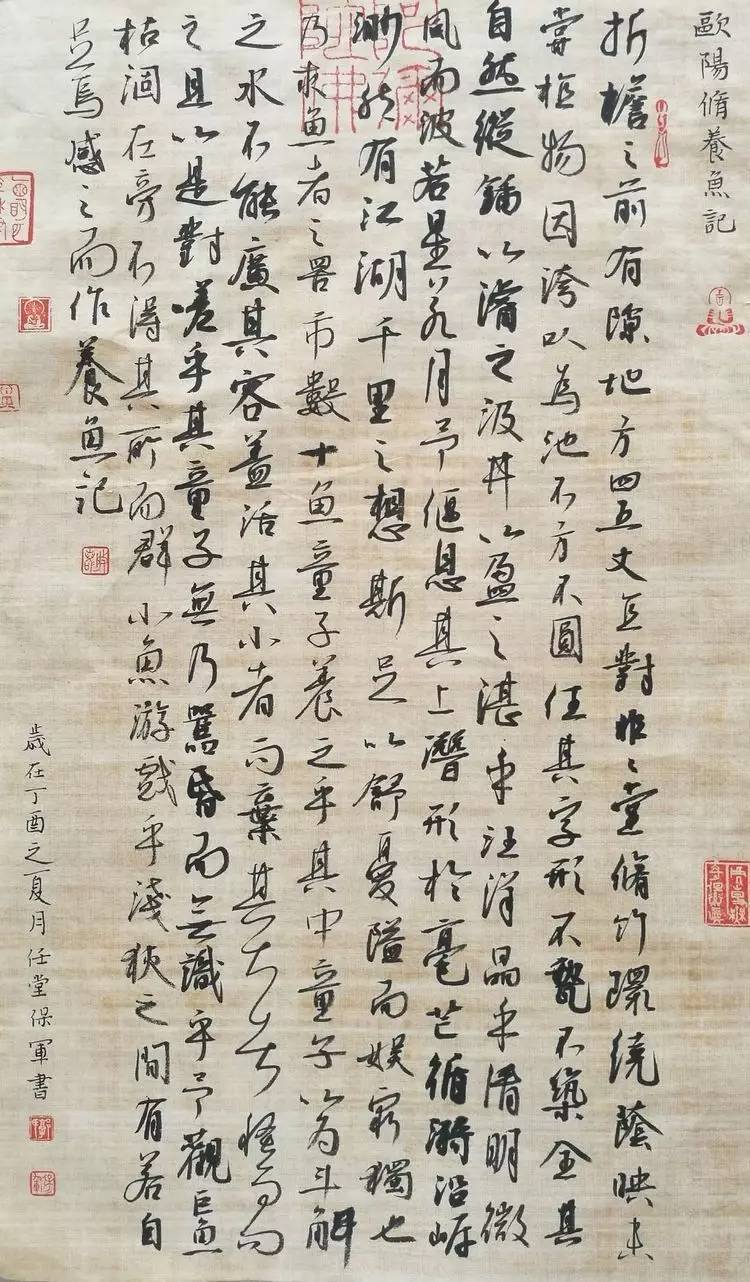 歐陽脩養魚記
折檐之前有隙地方四五丈直對非〻堂脩竹環繞蔭映未
嘗植物因洿以為池不方不圓任其字形不甃不築全其
自然縱鍤以濬之汲井以盈之湛乎汪洋晶乎清明微
風而波若星若月予偃息其上潛形於毫芒循漪沿岸
渺然有江湖千里之想斯足以舒憂隘而娛窮獨也
乃求魚者之罟市數十魚童子養之乎其中童子以為斗斛
之水不能廣其容蓋活其小者而棄其大者怪而問
之且以是對嗟乎其童子無乃嚚昏而無識乎予觀巨魚
枯涸在旁不得其所而群小魚游戲乎淺狹之間有若自
足焉感之而作養魚記
歲在丁酉之夏月任堂保軍書